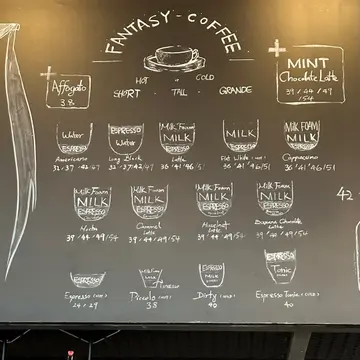 FANTASY-COFFEE
HOT → COLD
SHORT · TALL · GRANDE
+
Affogato
38
+
MINT
Chocolate Latte
39/44/49
/54
Water
ESPRESSO
Americano
32/37/42/47
ESPRESSO
Water
Long Black
32/37/42/47
Milk Foam
MILK
ESPRESSO
Latte
36/41/46/51
MILK
ESPRESSO
Flat White (HOT)
36/41/46/51
MILK FOAM
MILK
ESPRESSO
Cappuccino
36/41/46/51
Milk Foam
MILK
ESPRESSO
39/44/49/54
Milk Foam
MILK
ESPRESSO
Caramel
Latte
39/44/49/54
Milk Foam
MILK
ESPRESSO
Hazelnut
Latte
39/44/49/54
Milk Foam
MILK
ESPRESSO
Latte
39/44/49/54
42
ESPRESSO
Espresso (HOT)
24/29
MILK
ESPRESSO
Piccolo (HOT)
38
MILK
Dirty (HOT)
40
ESPRESSO
Tonic
Espresso Tonic
40